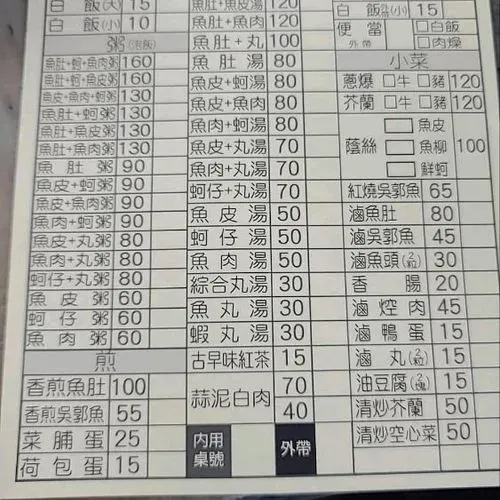 白飯(大) 15
白飯(小) 10
粥(泡飯)
魚肚+蚵+魚肉粥 160
魚肚+蚵+魚皮粥 160
魚皮+魚肉+蚵粥 130
魚肚+蚵粥 130
魚肚+魚皮粥 130
魚肚+魚肉粥 130
魚肚粥 90
魚皮+蚵粥 90
魚皮+魚肉粥 90
魚肉+蚵粥 90
魚皮+丸粥 80
魚肉+丸粥 80
蚵仔+丸粥 80
魚皮粥 60
蚵仔粥 60
魚肉粥 60
煎
香煎魚肚 100
香煎吳郭魚 55
菜脯蛋 25
荷包蛋 15
魚肚+魚皮湯 120
魚肚+魚肉 120
魚肚+丸 100
魚肚湯 80
魚皮+蚵湯 80
魚皮+魚肉 80
魚肉+蚵湯 80
魚皮+丸湯 70
魚肉+丸湯 70
蚵仔+丸湯 70
魚皮湯 50
蚵仔湯 50
魚肉湯 50
綜合丸湯 30
魚丸湯 30
蝦丸湯 30
古早味紅茶 15
蒜泥白肉 70
40
內用桌號
外帶
白飯(小) 15
便當 外帶 □白飯
□肉燥
小菜
蔥爆 □牛 □豬 120
芥蘭 □牛 □豬 120
蔭絲 □魚皮 100
□魚柳
□鮮蚵
紅燒吳郭魚 65
滷魚肚 80
滷吳郭魚 45
滷魚頭(2粒) 30
香腸 20
滷焢肉 45
滷鴨蛋 15
滷丸(2粒) 15
油豆腐(2塊) 15
清炒芥蘭 50
清炒空心菜 50